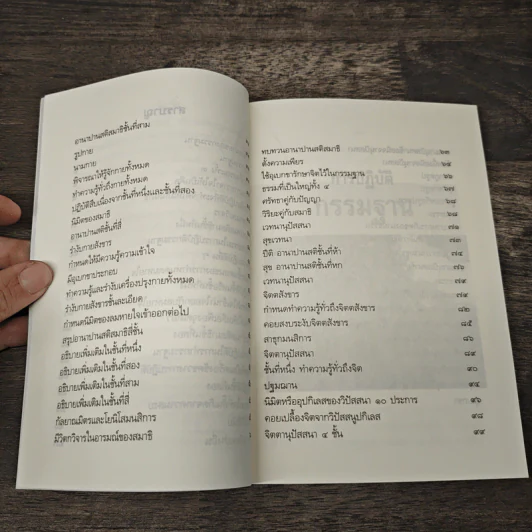 อานาปานสติสมาธิขั้นที่สาม
รูปกาย
นามกาย
พิจารณาให้รู้จักกายทั้งหมด
ทำความรู้ทั่วถึงกายทั้งหมด
ปฏิบัติสืบเนื่องจากขั้นที่หนึ่งและขั้นที่สอง
นิมิตของสมาธิ
อานาปานสติขั้นที่สี่
รำงับกายสังขาร
กำหนดให้มีความรู้ความเข้าใจ
มีอุเบกขาประกอบ
ทำความรู้และรำงับเครื่องปรุงกายทั้งหมด
รำงับกายสังขารขั้นละเอียด
กำหนดนิมิตของลมหายใจเข้าออกต่อไป
สรุปอานาปานสติสมาธิสี่ขั้น
อธิบายเพิ่มเติมในขั้นที่หนึ่ง
อธิบายเพิ่มเติมในขั้นที่สอง
อธิบายเพิ่มเติมในขั้นที่สาม
อธิบายเพิ่มเติมในขั้นที่สี่
กัลยาณมิตรและโยนิโสมนสิการ
มีวิตกวิจารในอารมณ์ของสมาธิ
ทบทวนอานาปานสติสมาธิ ๖๓
ตั้งความเพียร ๖๕
ใช้อุเบกขารักษาจิตไว้ในกรรมฐาน
ธรรมที่เป็นใหญ่ทั้ง ๔ ๖๗
ศรัทธาคู่กับปัญญา ๖๘
วิริยะคู่กับสมาธิ ๖๘
เวทนานุปัสสนา ๗๑
สุขเวทนา ๗๓
ปีติ อานาปานสติขั้นที่ห้า ๗๔
สุข อานาปานสติขั้นที่หก ๗๖
เวทนานุปัสสนา ๗๙
จิตตสังขาร ๗๙
กำหนดทำความรู้ทั่วถึงจิตตสังขาร ๘๒
คอยสงบระงับจิตตสังขาร ๘๕
สาธุกมนสิการ ๘๖
จิตตานุปัสสนา ๘๙
ขั้นที่หนึ่ง ทำความรู้ทั่วถึงจิต ๙๐
ปฐมฌาน ๙๔
นิมิตหรืออุปกิเลสของวิปัสสนา ๑๐ ประการ ๙๖
คอยเปลื้องจิตจากวิปัสสนูปกิเลส ๙๘
จิตตานุปัสสนา ๔ ขั้น ๙๙